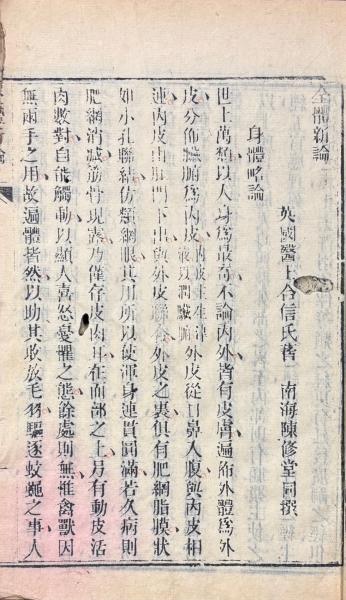 全體新論
英國醫士合信氏著 南海陳修堂同撰
身體略論
世上萬類以人身爲最奇不論內外皆有皮膚遍佈外體爲外
皮分佈臟腑爲內皮內皮生津液以潤臟腑外皮從口鼻入腹與內皮相
連內皮由肛門下出與外皮聯合外皮之裏俱有肥網脂膜狀
如小孔聯結仿類網眼其用所以使渾身連貫圓滿若久病則
肥網消減筋骨現露乃僅存皮肉耳在面部之上另有動皮活
肉數對自能觸動以顯人喜怒憂懼之態餘處則無惟禽獸因
無兩手之用故遍體皆然以助其收放毛羽驅逐蚊蠅之事人